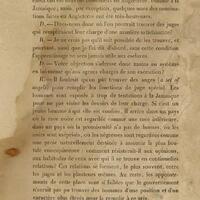 Jamaïque; mais, ces exceptés, quelques-unes des nomina-
tions faites en Angleterre ont été très-heureuses.
D. — Pensez-vous donc où l'on pourrait trouver des juges
qui rempliraient leur charge d'une manière satisfaisante?
R. — Je ne crois pas qu'il soit possible de les trouver, et
pourtant, ainsi que je l'ai dit d'abord, sans cette condition
l'apprentissage ne sera jamais utile aux esclaves.
D. — Votre objection s'adresse donc moins au système
en lui-même qu'aux agens chargés de son exécution?
R. — Il faudrait qu'un pût trouver des anges (a set of
angels) pour remplir les fonctions de juge spécial. Les
hommes sont exposés à trop de tentation à la Jamaïque
pour ne pas violer les devoirs de leur charge. Si c'est un
petit homme à qui elle est confiée, il arrive dans un pays
où la race noire est regardée comme une race inférieure,
dans un pays où la personnalité n'a pas de bornes, où les
noirs sont méprisés, où les négresses sont regardées comme
une proie naturellement destinée à assouvir la plus bru-
tale concupiscence; comment résisterait-il aux opinions,
aux habitudes de ceux avec qui il se trouve en continuelles
relations? Ces relations se forment, le plus souvent, entre
les juges et les planteurs mêmes. Au reste, les appointe-
ments de cette place sont si faibles que le gouvernement
n'aurait pas pu trouver des hommes d'une position et d'un
caractère plus élevés pour la remplir à ce prix.